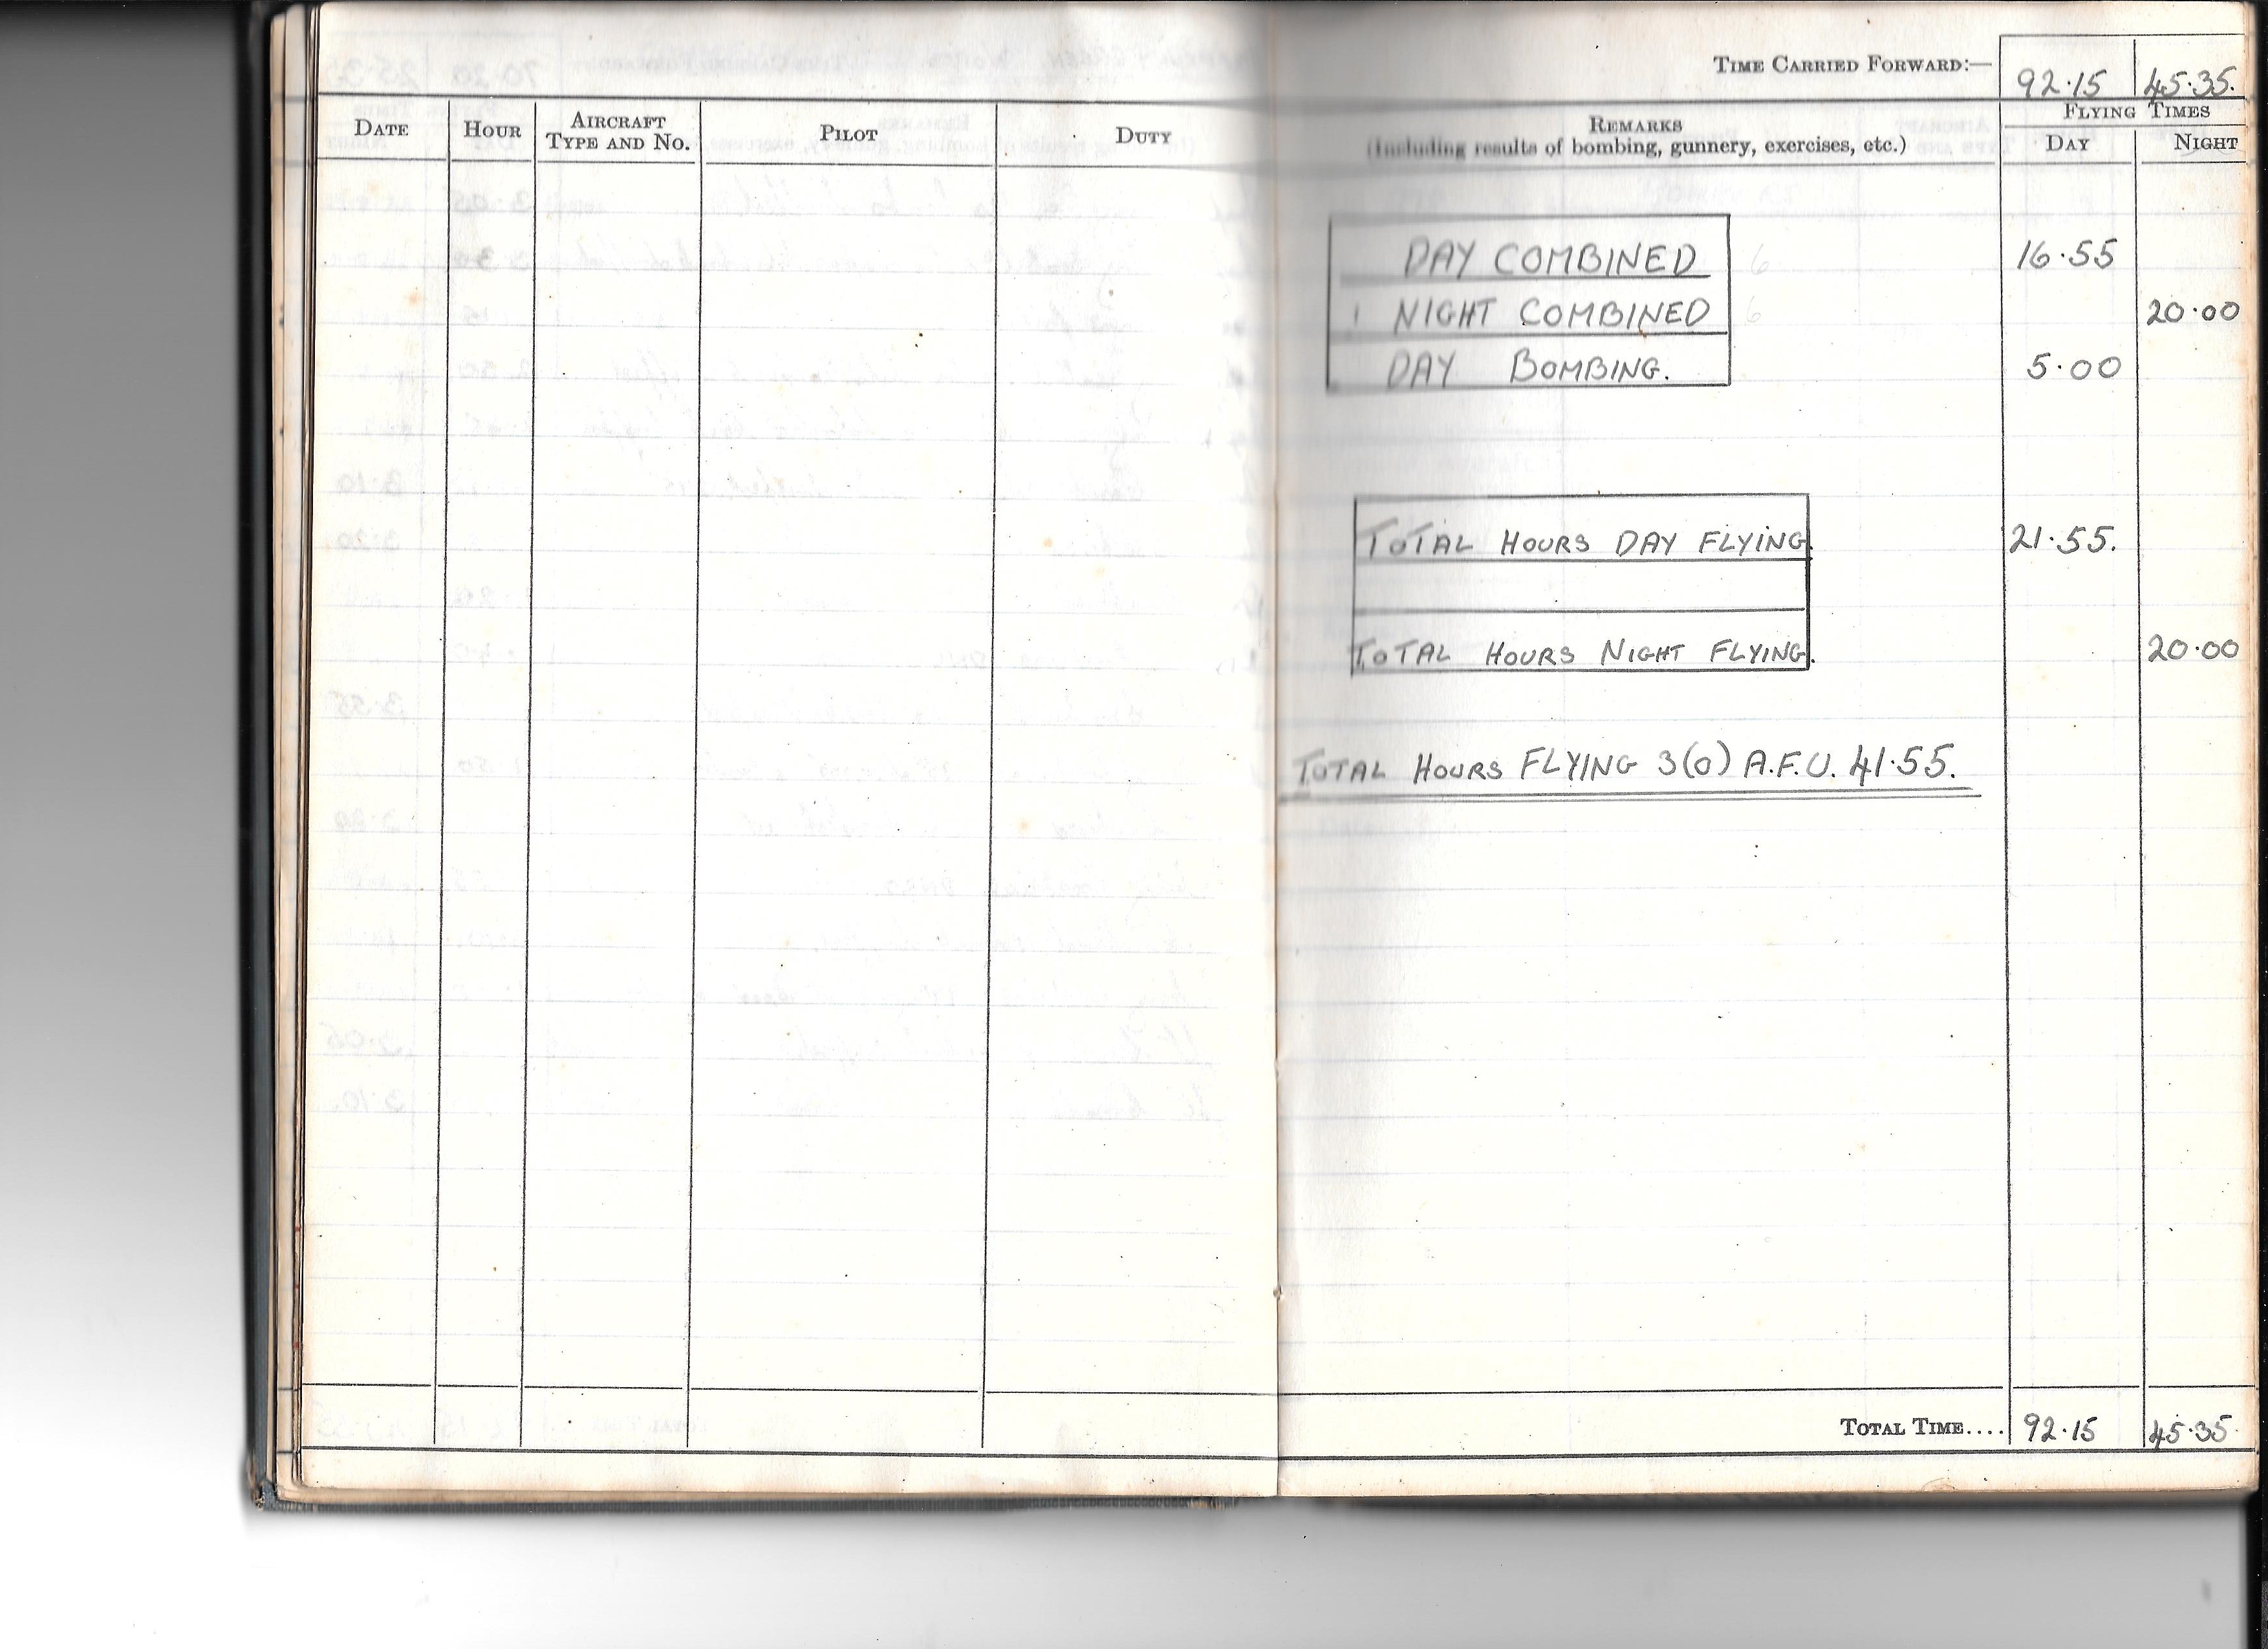 TIME CARRIED FORWARD:— 92·15 45·35.
DATE HOUR AIRCRAFT TYPE AND NO. PILOT DUTY REMARKS (Including results of bombing, gunnery, exercises, etc.) FLYING TIMES DAY NIGHT
DAY COMBINED 6 16·55
NIGHT COMBINED 6 20·00
DAY BOMBING. 5·00
TOTAL HOURS DAY FLYING. 21·55.
TOTAL HOURS NIGHT FLYING. 20·00
TOTAL HOURS FLYING 3(O) A.F.U. 41·55.
TOTAL TIME.... 92·15 45·35